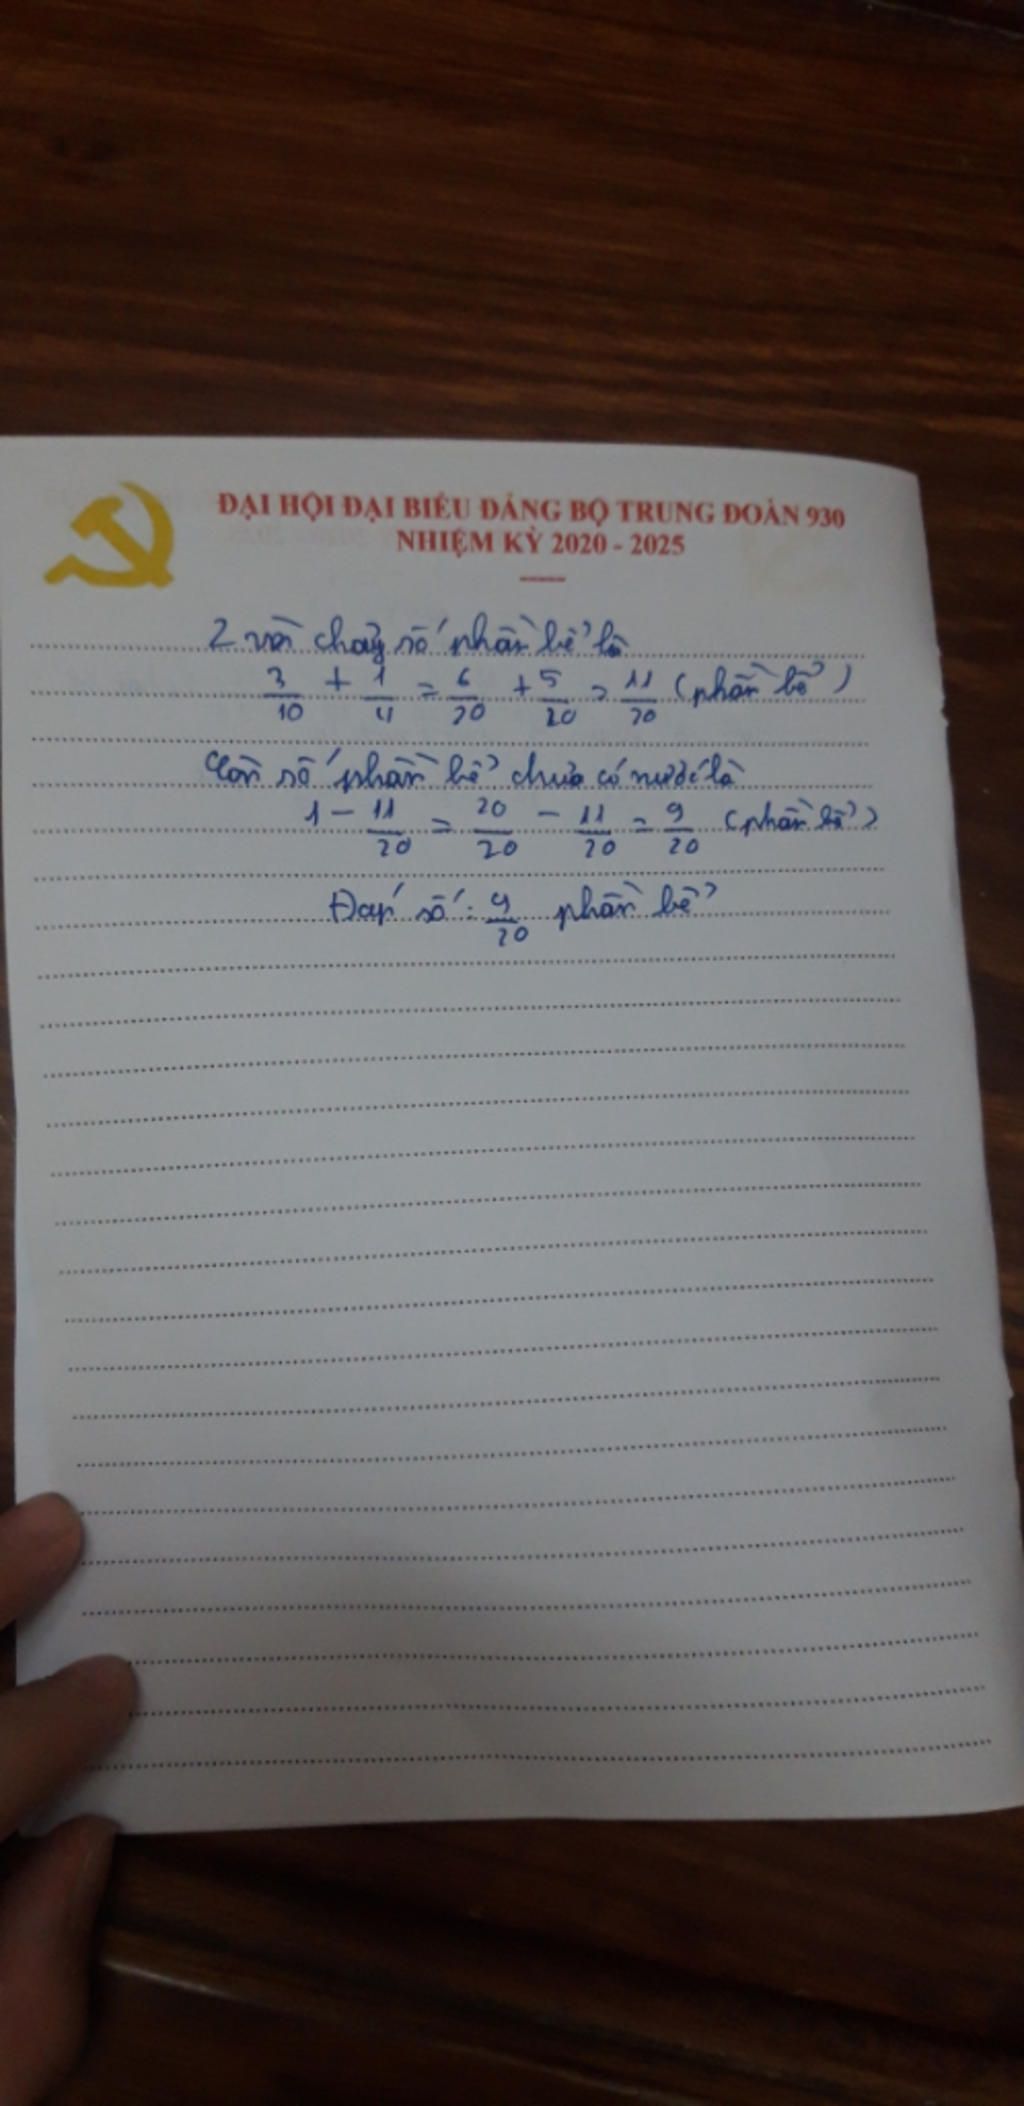 ĐẠI HỘI ĐẠI BIỂU ĐẢNG BỘ TRUNG ĐOÀN 930
NHIỆM KỲ 2020 - 2025
2 vòi chảy số phần bể là
3/10 + 1/4 = 6/20 + 5/20 = 11/20 (phần bể)
Còn số phần bể chưa có nước là
1 - 11/20 = 20/20 - 11/20 = 9/20 (phần bể)
Đáp số: 9/20 phần bể